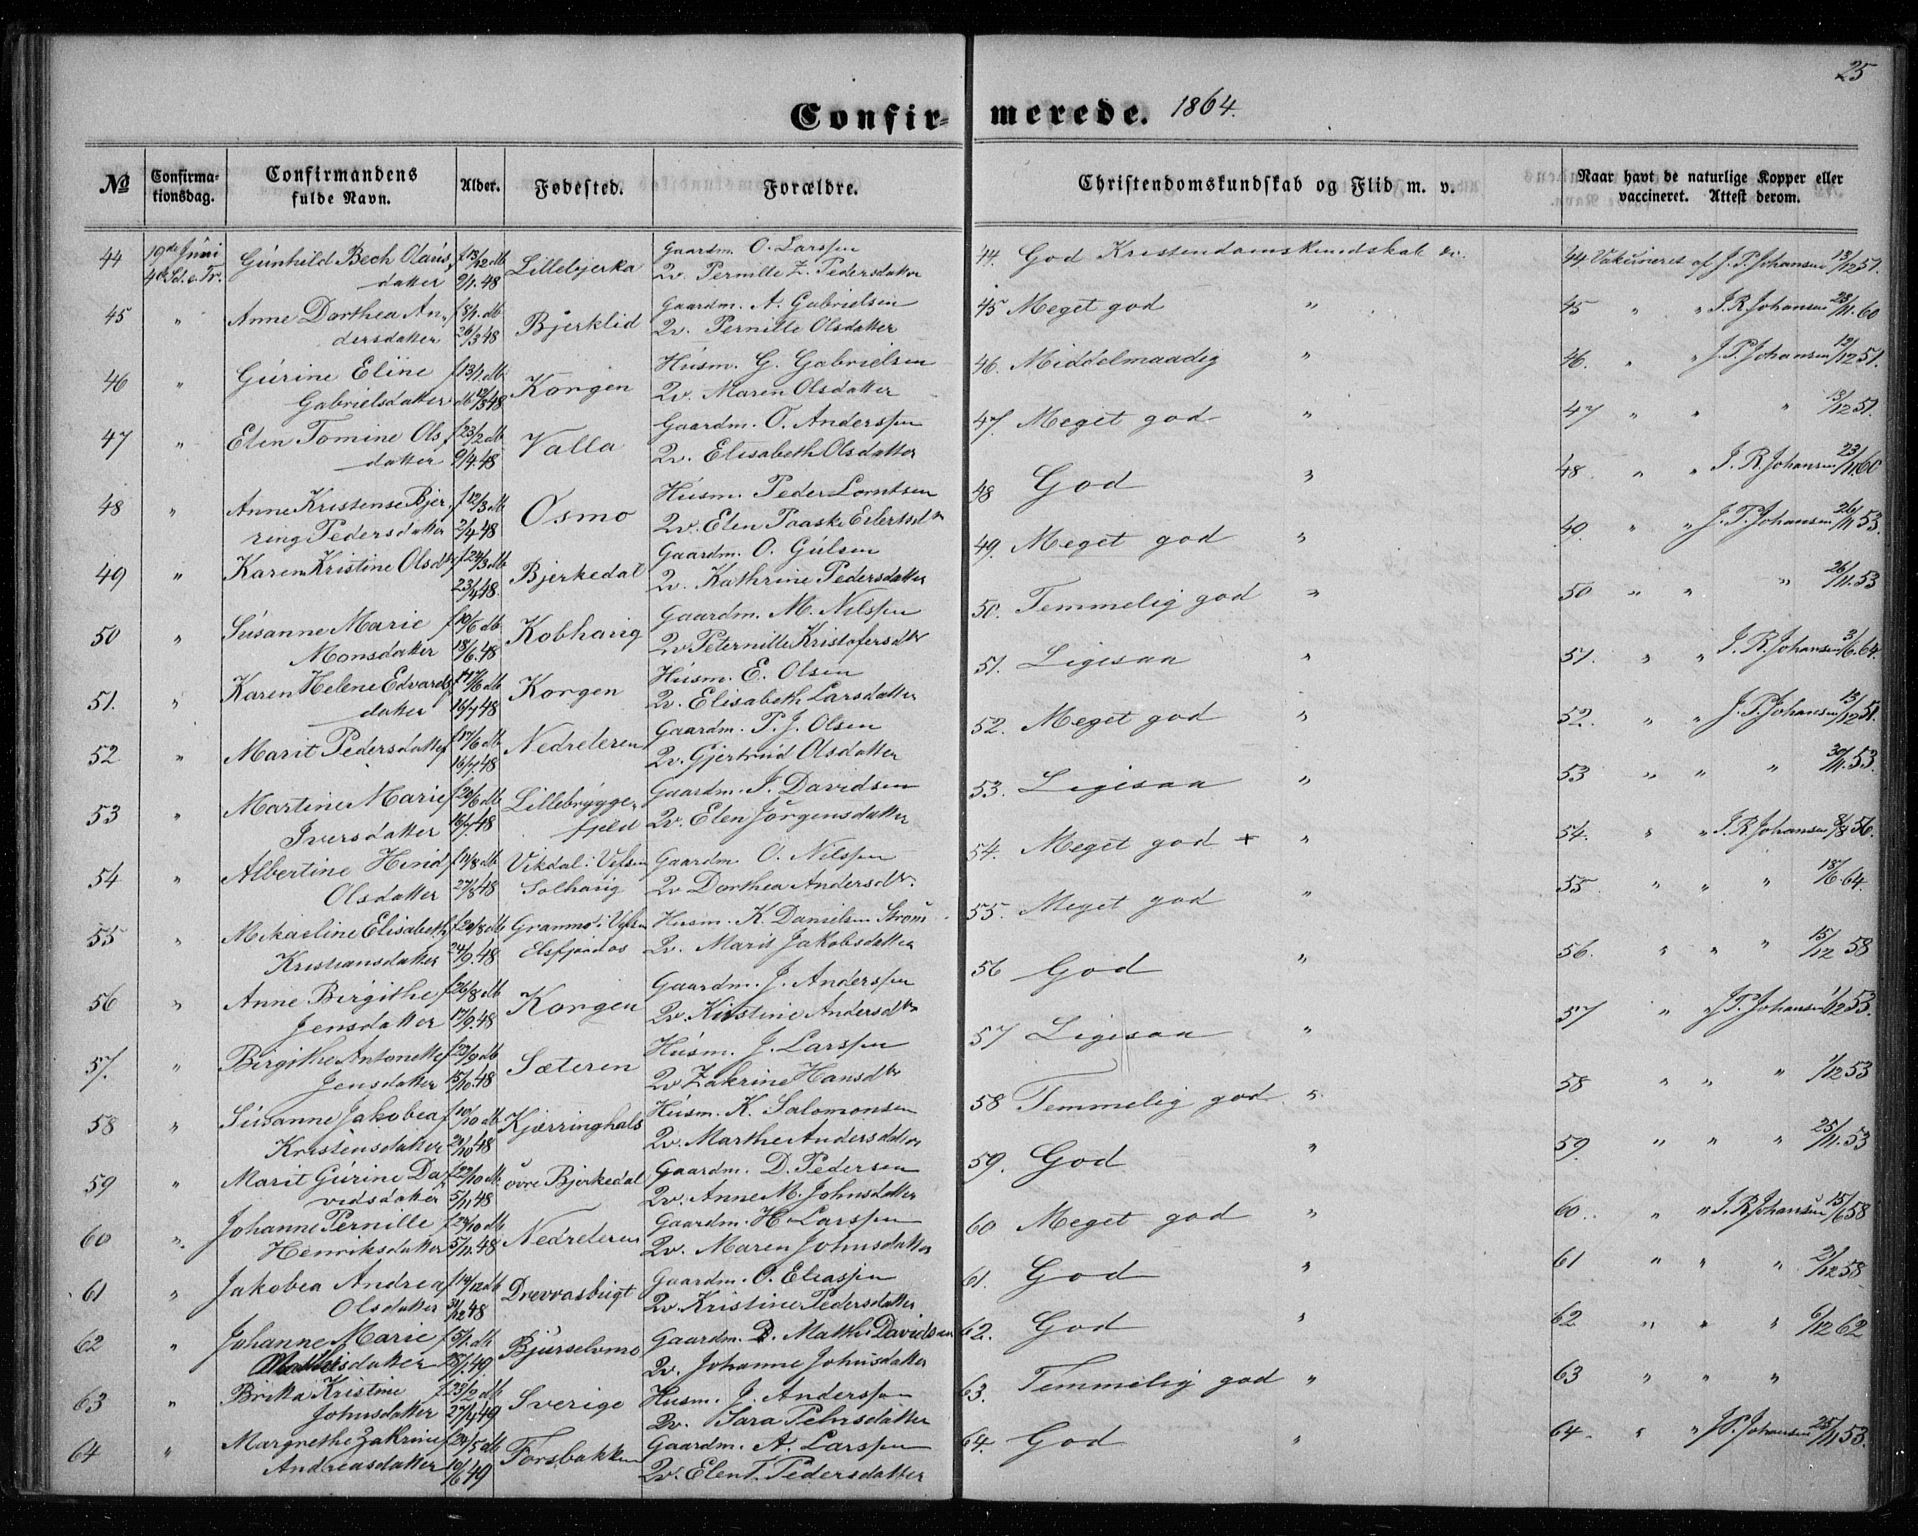 25
Confirmerede. 1864.
№ Confirmationsdag. Confirmandens fulde Navn. Alder. Fødested. Forældre. Christendomskundskab og Flid m. v. Naar havt de naturlige Kopper eller vaccineret. Attest derom.
44 19de Juni Gunhild Bech Olaus- f 13/12 db Lillebjerka Gaardm. O. Larssen 44. God Kristendomskundskab 44. Vakcineret af J. P. Johansen 13/12 51.
4de Sd. e. Tr. datter 9/1.48 Qv. Pernille Z. Pedersdatter
45 " Anne Dorthea An- f 8/1. db Bjerklid Gaardm. A. Gabrielsen 45 Meget god " 45 " " J. R. Johansen 23/11.60
dersdatter 26/3 48 Qv. Pernille Olsdatter
46 " Gurine Eline f 13/1. db Korgen Husm. G. Gabrielsen 46. Middelmaadig " 46. " " J. P. Johansen 13/12 51.
Gabrielsdatter 48 Qv. Maren Olsdatter
47 " Elen Tomine Ols- f 23/2 db Valla Gaardm. O. Anderssen 47. Meget god " 47 " " " 13/12 51.
datter 9/4.48 Qv. Elisabeth Olsdatter
48 " Anne Kristense Bjer- f 12/3 db Osmo Husm. Peder Lorntsen 48 God " 48. " " J. R. Johansen 23/11 60
ring Pedersdatter 2/4 48 Qv. Elen Paaske Eilertsdtr
49 " Karen Kristine Olsdtr f 24/3 db Bjerkedal Gaardm. O. Gulsen 49. Meget god " 49. " " J. P. Johansen 26/11 53.
23/4 48 Qv. Kathrine Pedersdatter
50 " Susanne Marie f 10/6 db Kobhaug Gaardm. M. Nilssen 50. Temmelig god " 50 " " " 26/11.53
Monsdatter 18/6.48 Qv Peternille Kristofersdtr
51. " Karen Helene Edvards- f 17/6 db Korgen Husm. E. Olsen 51. Ligesaa " 51. " " J. R. Johansen 3/6.64.
datter 16/7 48 Qv. Elisabeth Larsdatter
52 " Marit Pedersdatter f 17/6 db Nedreleren Gaardm. P. J. Olsen 52. Meget god " 52. " " J. P. Johansen 13/12 51.
16/7.48 Qv. Gjertrud Olsdatter
53 " Martine Marie f 20/6 db Lillebrygge- Gaardm. I. Davidsen 53. Ligesaa " 53 " " " 30/11.53.
Iversdatter 16/7.48 fjeld Qv. Elen Jörgensdatter
54 " Albertine Hind f 14/8 db Vikdal i Vefsen Gaardm. O. Nilssen 54. Meget god + " 54. " " J. R. Johansen 8/8 56.
Olsdatter 27/8 48 Solhaug Qv Dorthea Andersdtr.
55 " Mikaeline Elisabeth f 20/8 db Granmo i Vefsen Husm. K. Danielsen Strøm 55. Meget god " 55 " " " 18/6 64.
Kristiansdatter 24/9.48 Elsfjordos Qv. Marit Jakobsdatter
56 " Anne Birgithe f 26/8 db Korgen Gaardm. J. Anderssen 56 God " 56. " " " 15/12 58
Jensdatter 17/9.48 Qv. Kirstine Andersdtr
57. " Birgithe Antonette f 29/9 db Sæteren Husm. J. Larssen 57 Ligesaa " 57 " J. P. Johansen 1/12 53.
Jensdatter 15/10.48 Qv Zakrine Hansdtr
58 " Susanne Jakobea f 10/10 db Kjærringhals Husm. K. Salomonsen 58 Temmelig god " 58 " " " 1/12 53
Kristensdatter 29/10 48 Qv. Marthe Andersdatter
59 " Marit Gurine Da- f 22/10 db øvre Bjerkedal Gaardm. D. Pedersen 59. God " 59. " " " 25/11.53
vidsdatter 5/11.48 Qv. Anne M. Johnsdatter
60 " Johanne Pernille f 24/10 db Nedreleren Gaardm. H. Larssen 60 Meget god " 60. " " J. R. Johansen 15/6 58
Henriksdatter 5/11.48 Qv. Maren Johnsdatter
61 " Jakobea Andrea f 14/12 db Drevvasbugt Gaardm. O. Eliassen 61. God " 61 " " " 2/12 58
Olsdatter 31/12 48 Qv. Kristine Pedersdatter
62 " Johanne Marie f 5/1. db Bjurselvmo Gaardm. D. Math. Davidsen 62. God " 62 " " " 6/12 62
Mathisdatter 28/1.49. Qv. Johanne Johnsdatter
63 " Brita Kristine f 25/2 db Sverige Husm. J. Anderssen 63. Temmelig god " 63 " " "
Johnsdatter 27/4 49 Qv. Sara Pehrsdatter
64 " Margrethe Zakrine f 24/5 db Forsbakken Gaardm. A. Larssen 64. God " 64. " " J. P. Johansen 25/11 53.
Andreasdatter 10/6 49 Qv. Elen T. Pedersdatter